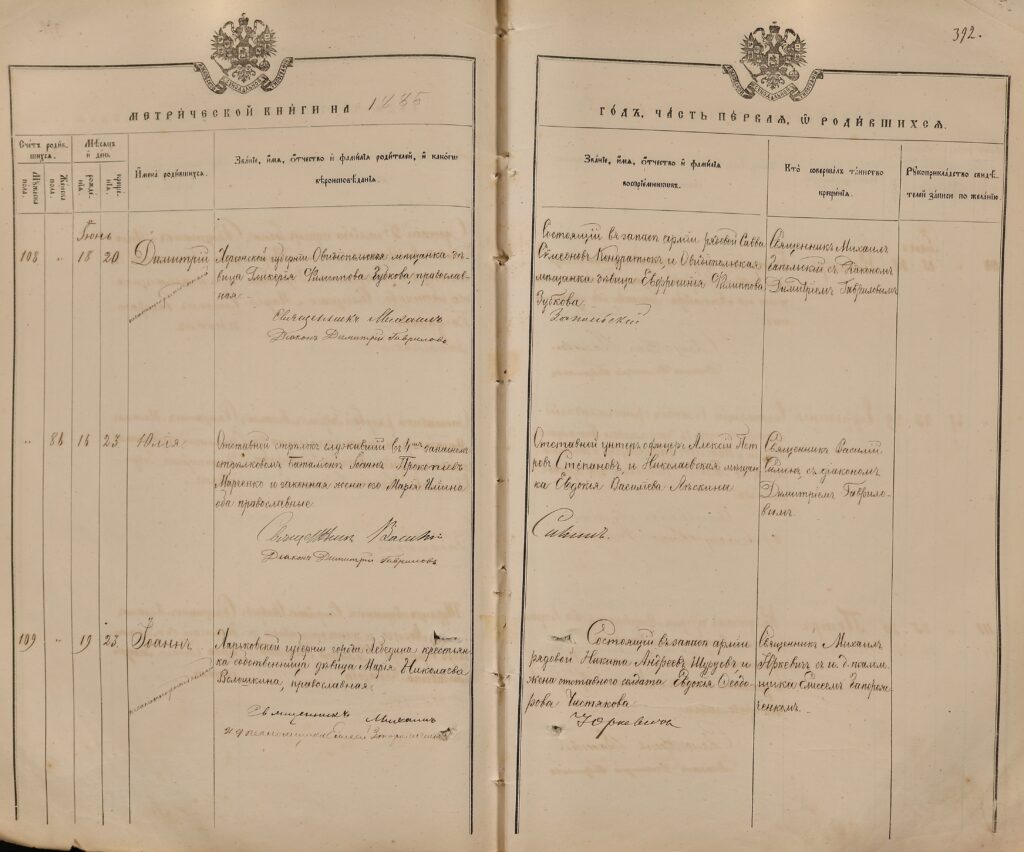 392.
МЕТРИ́ЧЕСКОЙ КНИ́ГИ НА 1885
ГО́ДЪ, ЧА́СТЬ ПЕ́РВАЯ, Ѡ РОДИ́ВШИХСЯ.
Сче́тъ роди́вшихся.
Му́жеска пола.
Же́нска пола.
Мѣ́сяцъ и день.
рожде́нїя.
креще́нїя.
И́мена роди́вшихся.
Зва́нїе, и́мя, ѻ́тчество и фами́лїя роди́телей, и како́гѡ
вѣроисповѣ́данїя.
Зва́нїе, и́мя, ѻ́тчество и фами́лїя
воспрїе́мниковъ.
Кто̀ соверша́лъ та́инство
креще́нїя.
Рꙋкоприкла́дство свидѣ́телей за́писи по жела́нїю
Іюнь
108 18 20 Димитрій
Херсонской губерніи Овидіопольская мѣщанка дѣвица Гликерія Филиппова Зубкова, православная.
Священникъ Михаилъ
Діаконъ Димитрій Гавриловъ
Состоящій въ запасѣ арміи рядовой Савва
Симеоновъ Кондратюкъ, и Овидіопольская
мѣщанка дѣвица Евфросинія Филиппова
Зубкова.
Запольскій
Священникъ Михаилъ
Запольскій съ діакономъ
Димитріемъ Гавриловымъ
" 86 14 23 Юлія
Отставной стрѣлокъ служившій въ 4мъ запасномъ
стрѣлковомъ баталіонѣ Іоаннъ Прокопіевъ
Марченко и законная жена его Марія Иліина
оба православные
Священникъ Василій
Діаконъ Димитрій Гавриловъ
Отставной унтеръ офицеръ Алексій Петровъ Степановъ, и Николаевская мѣщанка Евдокія Василіева
Священникъ Василій
съ діакономъ
Димитріемъ Гавриловымъ.
109 " 19 23 Іоаннъ
Харьковской губерніи города Лебедина крестьянка собственница дѣвица Марія Николаева
Волошкина, православная.
Священникъ Михаилъ
Состоящій въ запасѣ арміи
рядовой Никита Андреевъ и
жена отставного солдата Евдокія Ѳеодорова Чистякова
Юркевичъ
Священникъ Михаилъ
Юркевичъ съ и. д. псаломщика